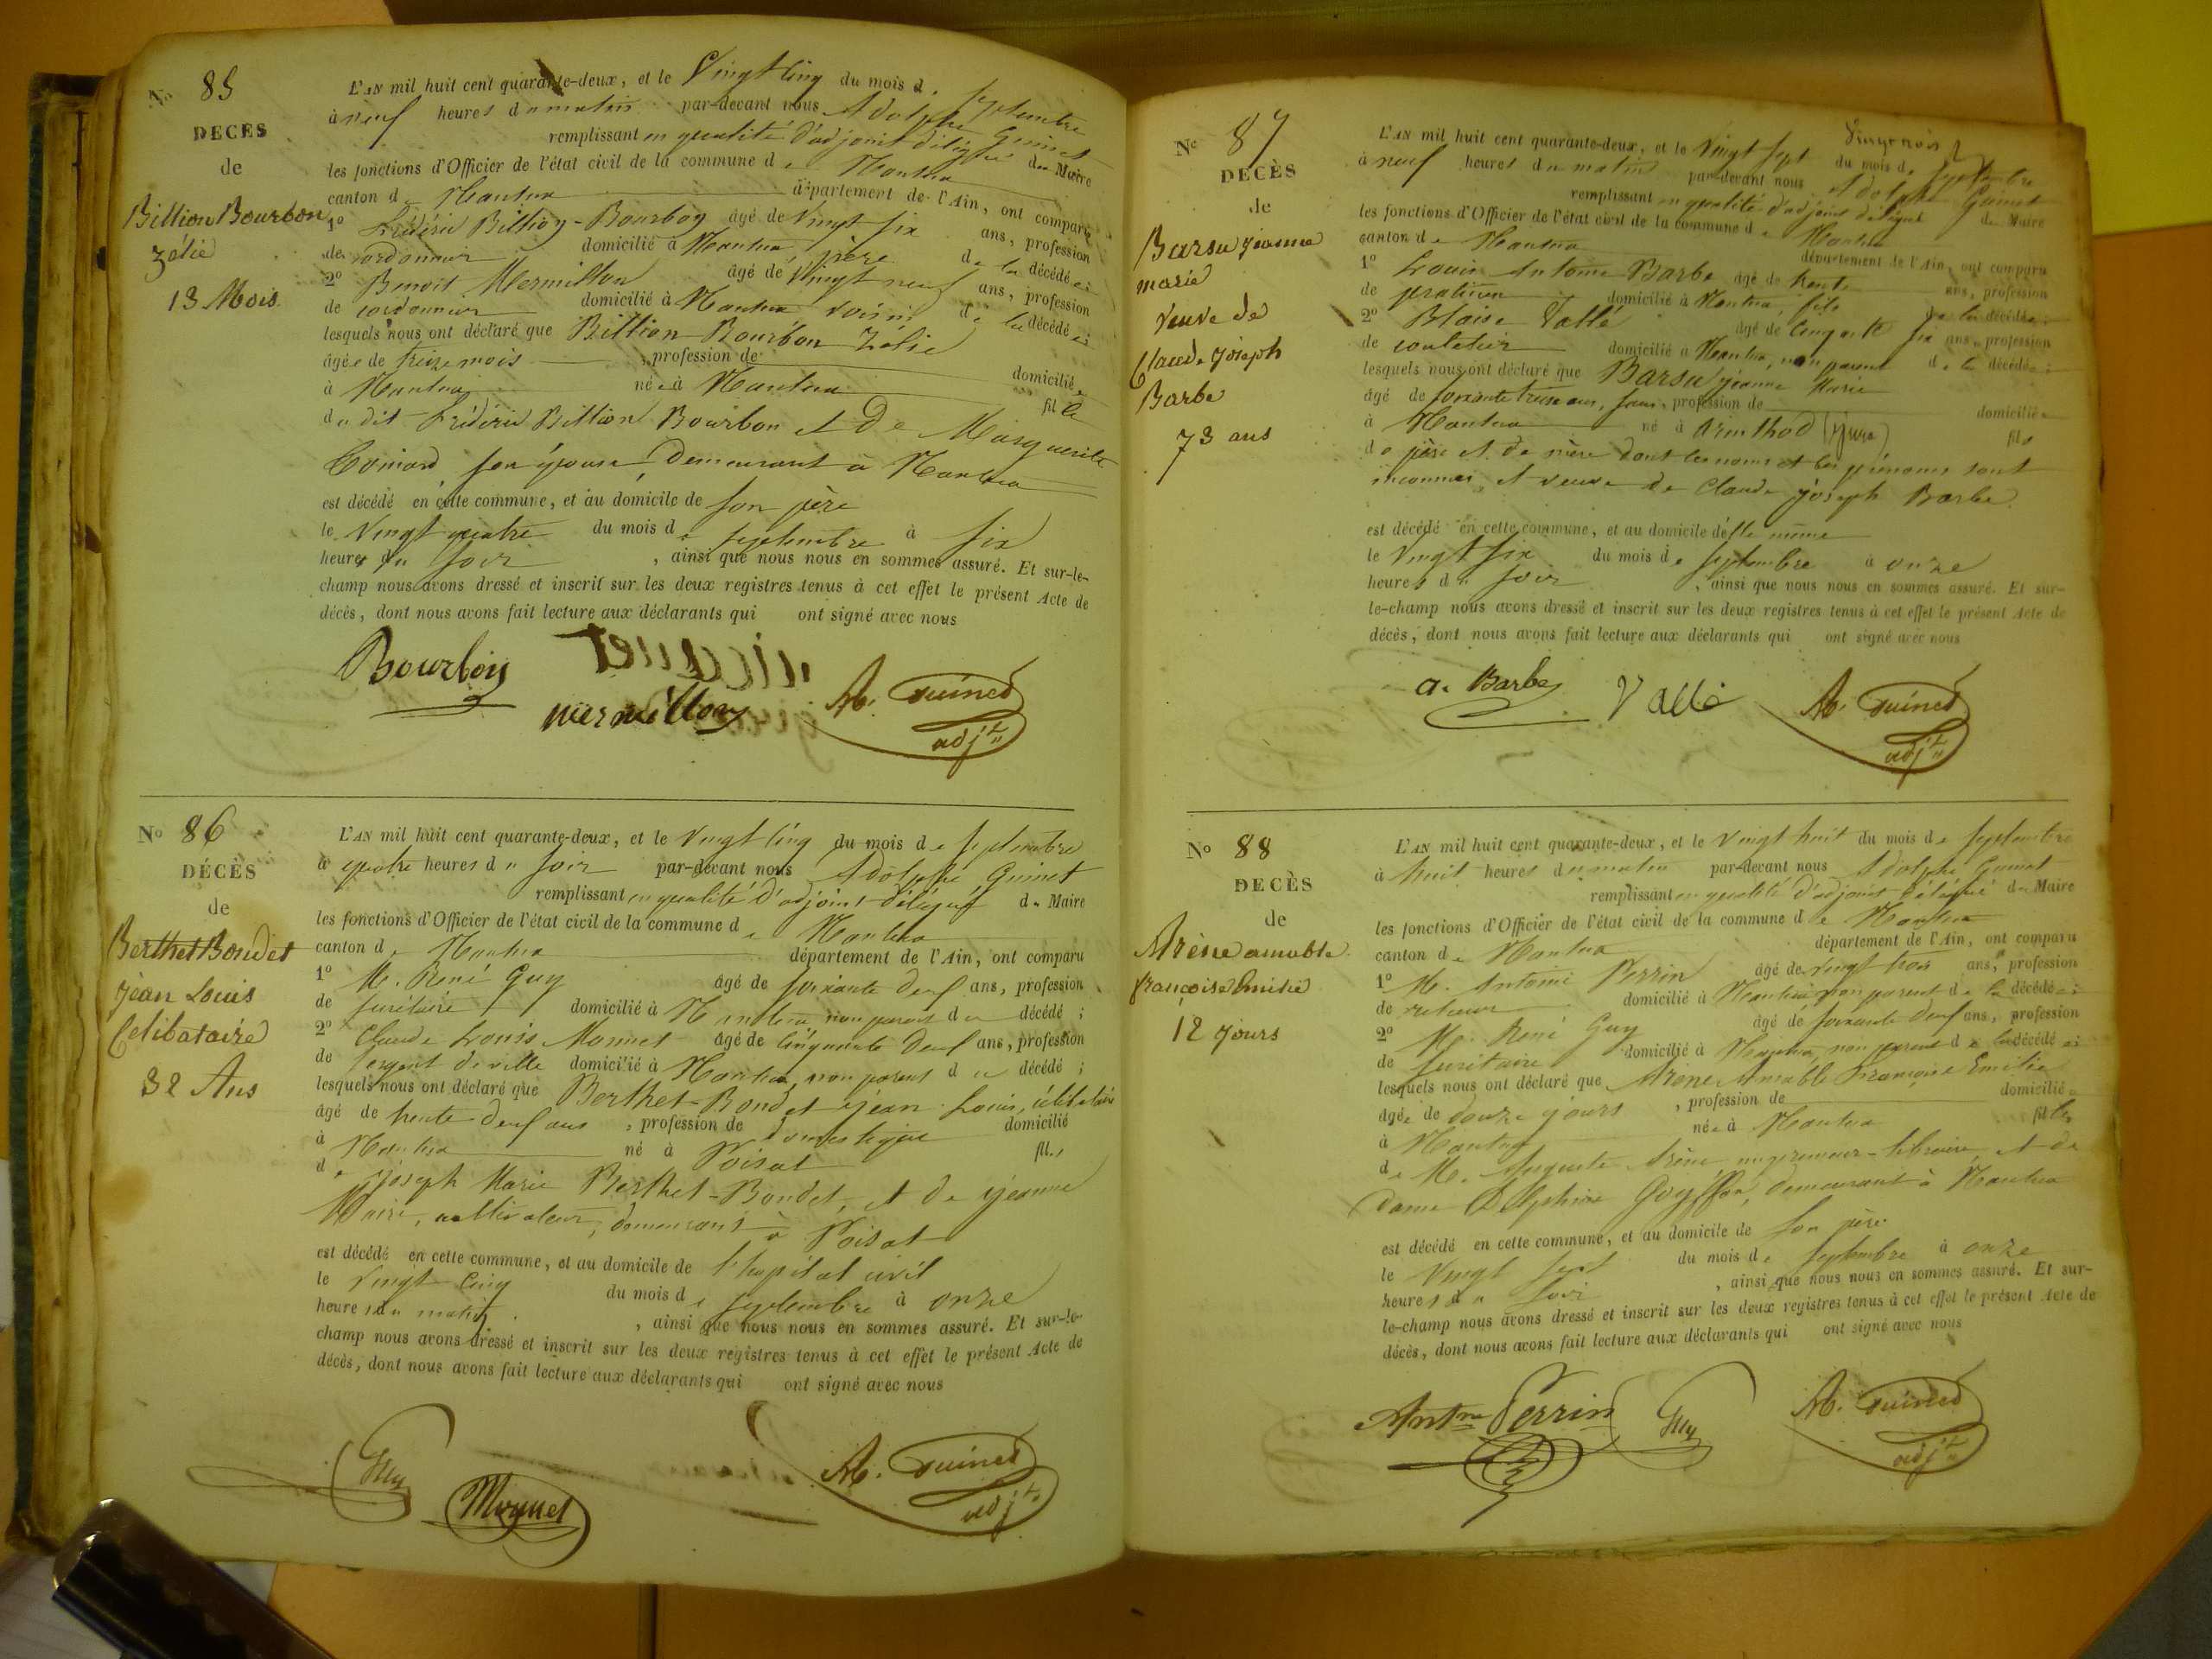 No 85
DECES
de
Billion Bourbon
Zélie
13 Mois
L'AN mil huit cent quarante-deux, et le Vingt cinq du mois de Septembre
à neuf heures du matin par-devant nous Adolphe Guinet
remplissant en qualité d'adjoint délégué du Maire
les fonctions d'Officier de l'état civil de la commune de Nantua
canton de Nantua département de l'Ain, ont comparu
1º Frédéric Billion-Bourbon âgé de Vingt six ans, profession
de cordonnier domicilié à Nantua, père de la décédée;
2º Benoit Mermillon âgé de Vingt neuf ans, profession
de cordonnier domicilié à Nantua voisin de la décédée;
lesquels nous ont déclaré que Billion Bourbon Zélie
âgée de treize mois, profession de domiciliée
à Nantua née à Nantua fille
du dit Frédéric Billion Bourbon et De Marguerite
son épouse, Demeurant à Nantua
est décédé en cette commune, et au domicile de son père
le Vingt quatre du mois de Septembre à six
heures du soir, ainsi que nous nous en sommes assuré. Et sur-le-
champ nous avons dressé et inscrit sur les deux registres tenus à cet effet le présent Acte de
décès, dont nous avons fait lecture aux déclarants qui ont signé avec nous
Bourbon
mermillon
Ad. Guinet
adjt
No 86
DÉCÈS
de
Berthet Bondet
jean Louis
Celibataire
32 Ans
L'AN mil huit cent quarante-deux, et le Vingt cinq du mois de Septembre
à quatre heures du soir par-devant nous Adolphe Guinet
remplissant en qualité d'adjoint délégué du Maire
les fonctions d'Officier de l'état civil de la commune de Nantua
canton de Nantua département de l'Ain, ont comparu
1º M. René Guy âgé de soixante deux ans, profession
de secrétaire domicilié à Nantua non parent du décédé;
2º Claude Louis Monnet âgé de Cinquante deux ans, profession
de sergent de ville domicilié à Nantua, non parent du décédé;
lesquels nous ont déclaré que Berthet-Bondet jean Louis, célibataire
âgé de trente deux ans, profession de domestique domicilié
à Nantua né à Poisat fils
de joseph Marie Berthet-Bondet, et de jeanne
cultivateurs, demeurans à Poisat
est décédé en cette commune, et au domicile de l'hopital civil
le Vingt Cinq du mois de septembre à onze
heures du matin, ainsi que nous nous en sommes assuré. Et sur-le-
champ nous avons dressé et inscrit sur les deux registres tenus à cet effet le présent Acte de
décès, dont nous avons fait lecture aux déclarants qui ont signé avec nous
Guy
Monnet
Ad. Guinet
adjt
No 87
DECÈS
de
Barsu jeanne
marie
veuve de
Claude joseph
Barbe
73 ans
L'AN mil huit cent quarante-deux, et le Vingt sept du mois de septembre
à neuf heures du matin par-devant nous Adolphe Guinet
remplissant en qualité d'adjoint délégué du Maire
les fonctions d'Officier de l'état civil de la commune de Nantua
canton de Nantua département de l'Ain, ont comparu
1º Louis Antoine Barbe âgé de trente ans, profession
de praticien domicilié à Nantua, fils de la décédée;
2º Blaise Vallé âgé de Cinquante six ans, profession
de coutelier domicilié à Nantua, non parent de la décédée;
lesquels nous ont déclaré que Barsu jeanne Marie
âgé de soixante treize ans, sans, profession de domiciliée
à Nantua né à Arinthod (jura) fille
de père et de mère dont les noms et les prénoms sont
inconnus, et veuve de Claude joseph Barbe
est décédé en cette commune, et au domicile d'elle même
le Vingt six du mois de septembre à onze
heures du soir, ainsi que nous nous en sommes assuré. Et sur-
le-champ nous avons dressé et inscrit sur les deux registres tenus à cet effet le présent Acte de
décès, dont nous avons fait lecture aux déclarants qui ont signé avec nous
a. Barbe
Vallé
Ad. Guinet
adjt
No 88
DECÈS
de
Arène amable
françoise Emilie
12 jours
L'AN mil huit cent quarante-deux, et le Vingt huit du mois de Septembre
à huit heures du matin par-devant nous Adolphe Guinet
remplissant en qualité d'adjoint délégué du Maire
les fonctions d'Officier de l'état civil de la commune de Nantua
canton de Nantua département de l'Ain, ont comparu
1º M. Antoine Perrin âgé de Vingt trois ans, profession
de relieur domicilié à Nantua non parent de la décédée;
2º M. René Guy âgé de soixante deux ans, profession
de secrétaire domicilié à Nantua, non parent de la décédée;
lesquels nous ont déclaré que Arène Amable Françoise Emilie
âgée de douze jours, profession de domiciliée
à Nantua née à Nantua fille
de M. Auguste Arène imprimeur-libraire, et de
Dame Delphine Goyffon, demeurant à Nantua
est décédé en cette commune, et au domicile de son père
le Vingt sept du mois de septembre à onze
heures du soir, ainsi que nous nous en sommes assuré. Et sur-
le-champ nous avons dressé et inscrit sur les deux registres tenus à cet effet le présent Acte de
décès, dont nous avons fait lecture aux déclarants qui ont signé avec nous
Antne Perrin
Guy
Ad. Guinet
adjt